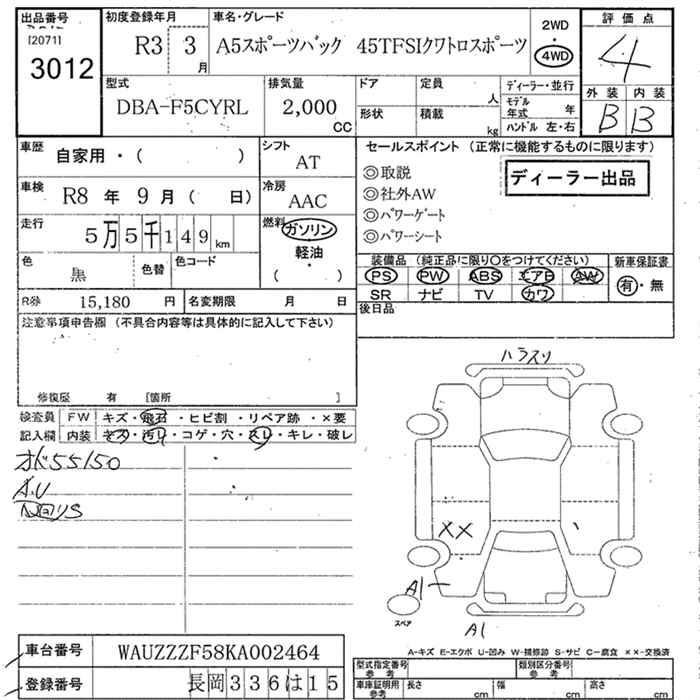 出品番号
[2071]
3012
初度登録年月
R3 3 月
車名・グレード
A5スポーツバック 45TFSIクワトロスポーツ
2WD
・
4WD
評価点
4
外装 内装
B B
型式
DBA-F5CYRL
排気量
2,000 CC
ドア
形状
定員 人
積載 kg
ディーラー・並行
モデル年式 年
ハンドル 左・右
車歴
自家用・( )
シフト
AT
車検
R8 年 9 月 ( 日)
冷房
AAC
走行
5万5千149 km
燃料
ガソリン
軽油
・
( )
色
黒
色替
色コード
R券 15,180 円
名変期限 月 日
セールスポイント (正常に機能するものに限ります)
◎取説
◎社外AW
◎パワーゲート
◎パワーシート
ディーラー出品
装備品 (純正品に限り○をつけてください)
PS PW ABS エアB AW
SR ナビ TV カワ
新車保証書
有・無
後日品
注意事項申告欄 (不具合内容等は具体的に記入して下さい)
修復歴 有 [箇所 ]
検査員
記入欄
FW キズ・飛石・ヒビ割・リペア跡・×要
内装 キズ・汚リ・コゲ・穴・スレ・キレ・破レ
55150
ハラスリ
××
A1
スペア
A1
A-キズ E-エクボ U-凹み W-補修跡 S-サビ C-腐食 ××-交換済
車台番号 WAUZZZF58KA002464
登録番号 長岡336は15
型式指定番号
参考
類別区分番号
参考
車庫証明用
参考
長さ cm
幅 cm
高さ cm